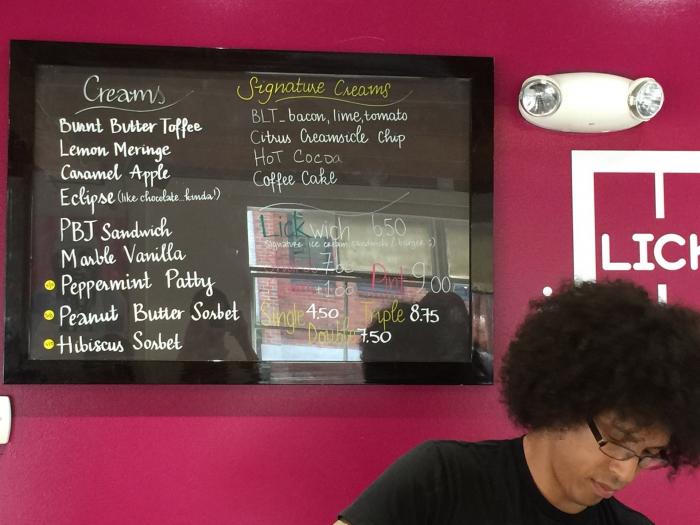 Creams
Burnt Butter Toffee
Lemon Meringe
Caramel Apple
Eclipse (like chocolate...kinda!)
PBJ Sandwich
Marble Vanilla
Peppermint Patty
Peanut Butter Sorbet
Hibiscus Sorbet
Signature Creams
BLT_bacon, lime, tomato
Citrus Creamsicle Chip
HoT Cocoa
Coffee Cake
Lickwich 650
signature ice cream sandwich / burger :)
700
+1.00 Pint 9.00
Single 4.50 Triple 8.75
Double 7.50
LICK